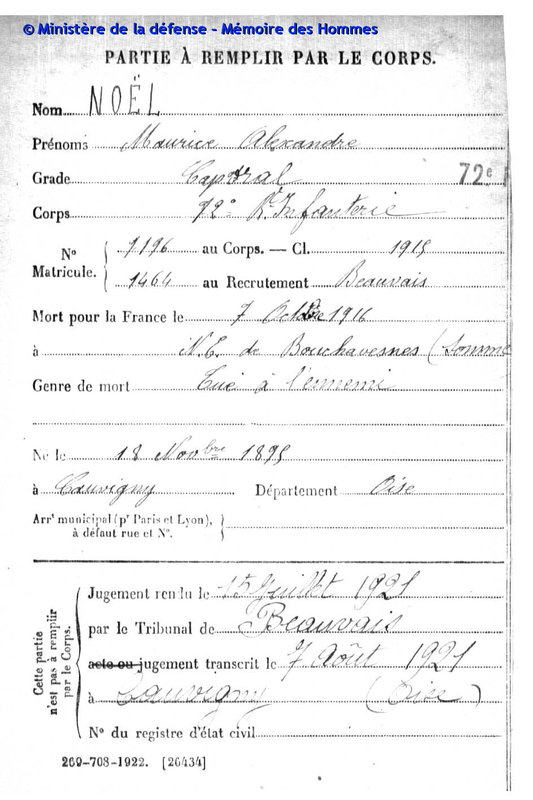 © Ministère de la défense - Mémoire des Hommes
PARTIE À REMPLIR PAR LE CORPS.
Nom NOËL
Prénoms Maurice Alexandre
Grade Caporal 72e
Corps 72e R. Infanterie
No Matricule. { 7196 au Corps. — Cl. 1915
1464 au Recrutement Beauvais
Mort pour la France le 7 Octobre 1916
à N.E. de Bouchavesnes (Somme
Genre de mort Tué à l'ennemi
Né le 18 Novbre 1895
à Cauvigny Département Oise
Arrt municipal (pr Paris et Lyon),
à défaut rue et No.
Cette partie n'est pas à remplir par le Corps.
Jugement rendu le 15 Juillet 1921
par le Tribunal de Beauvais
acte ou jugement transcrit le 7 Août 1921
à Cauvigny (Oise)
No du registre d'état civil
269-708-1922. [26434]